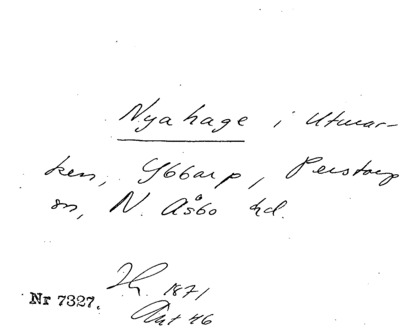 Nyahage i Utmar-
ken, Ybbarp, Perstorp
sn, N. Åsbo hd.
1871
Nr 7327.
Akt 46